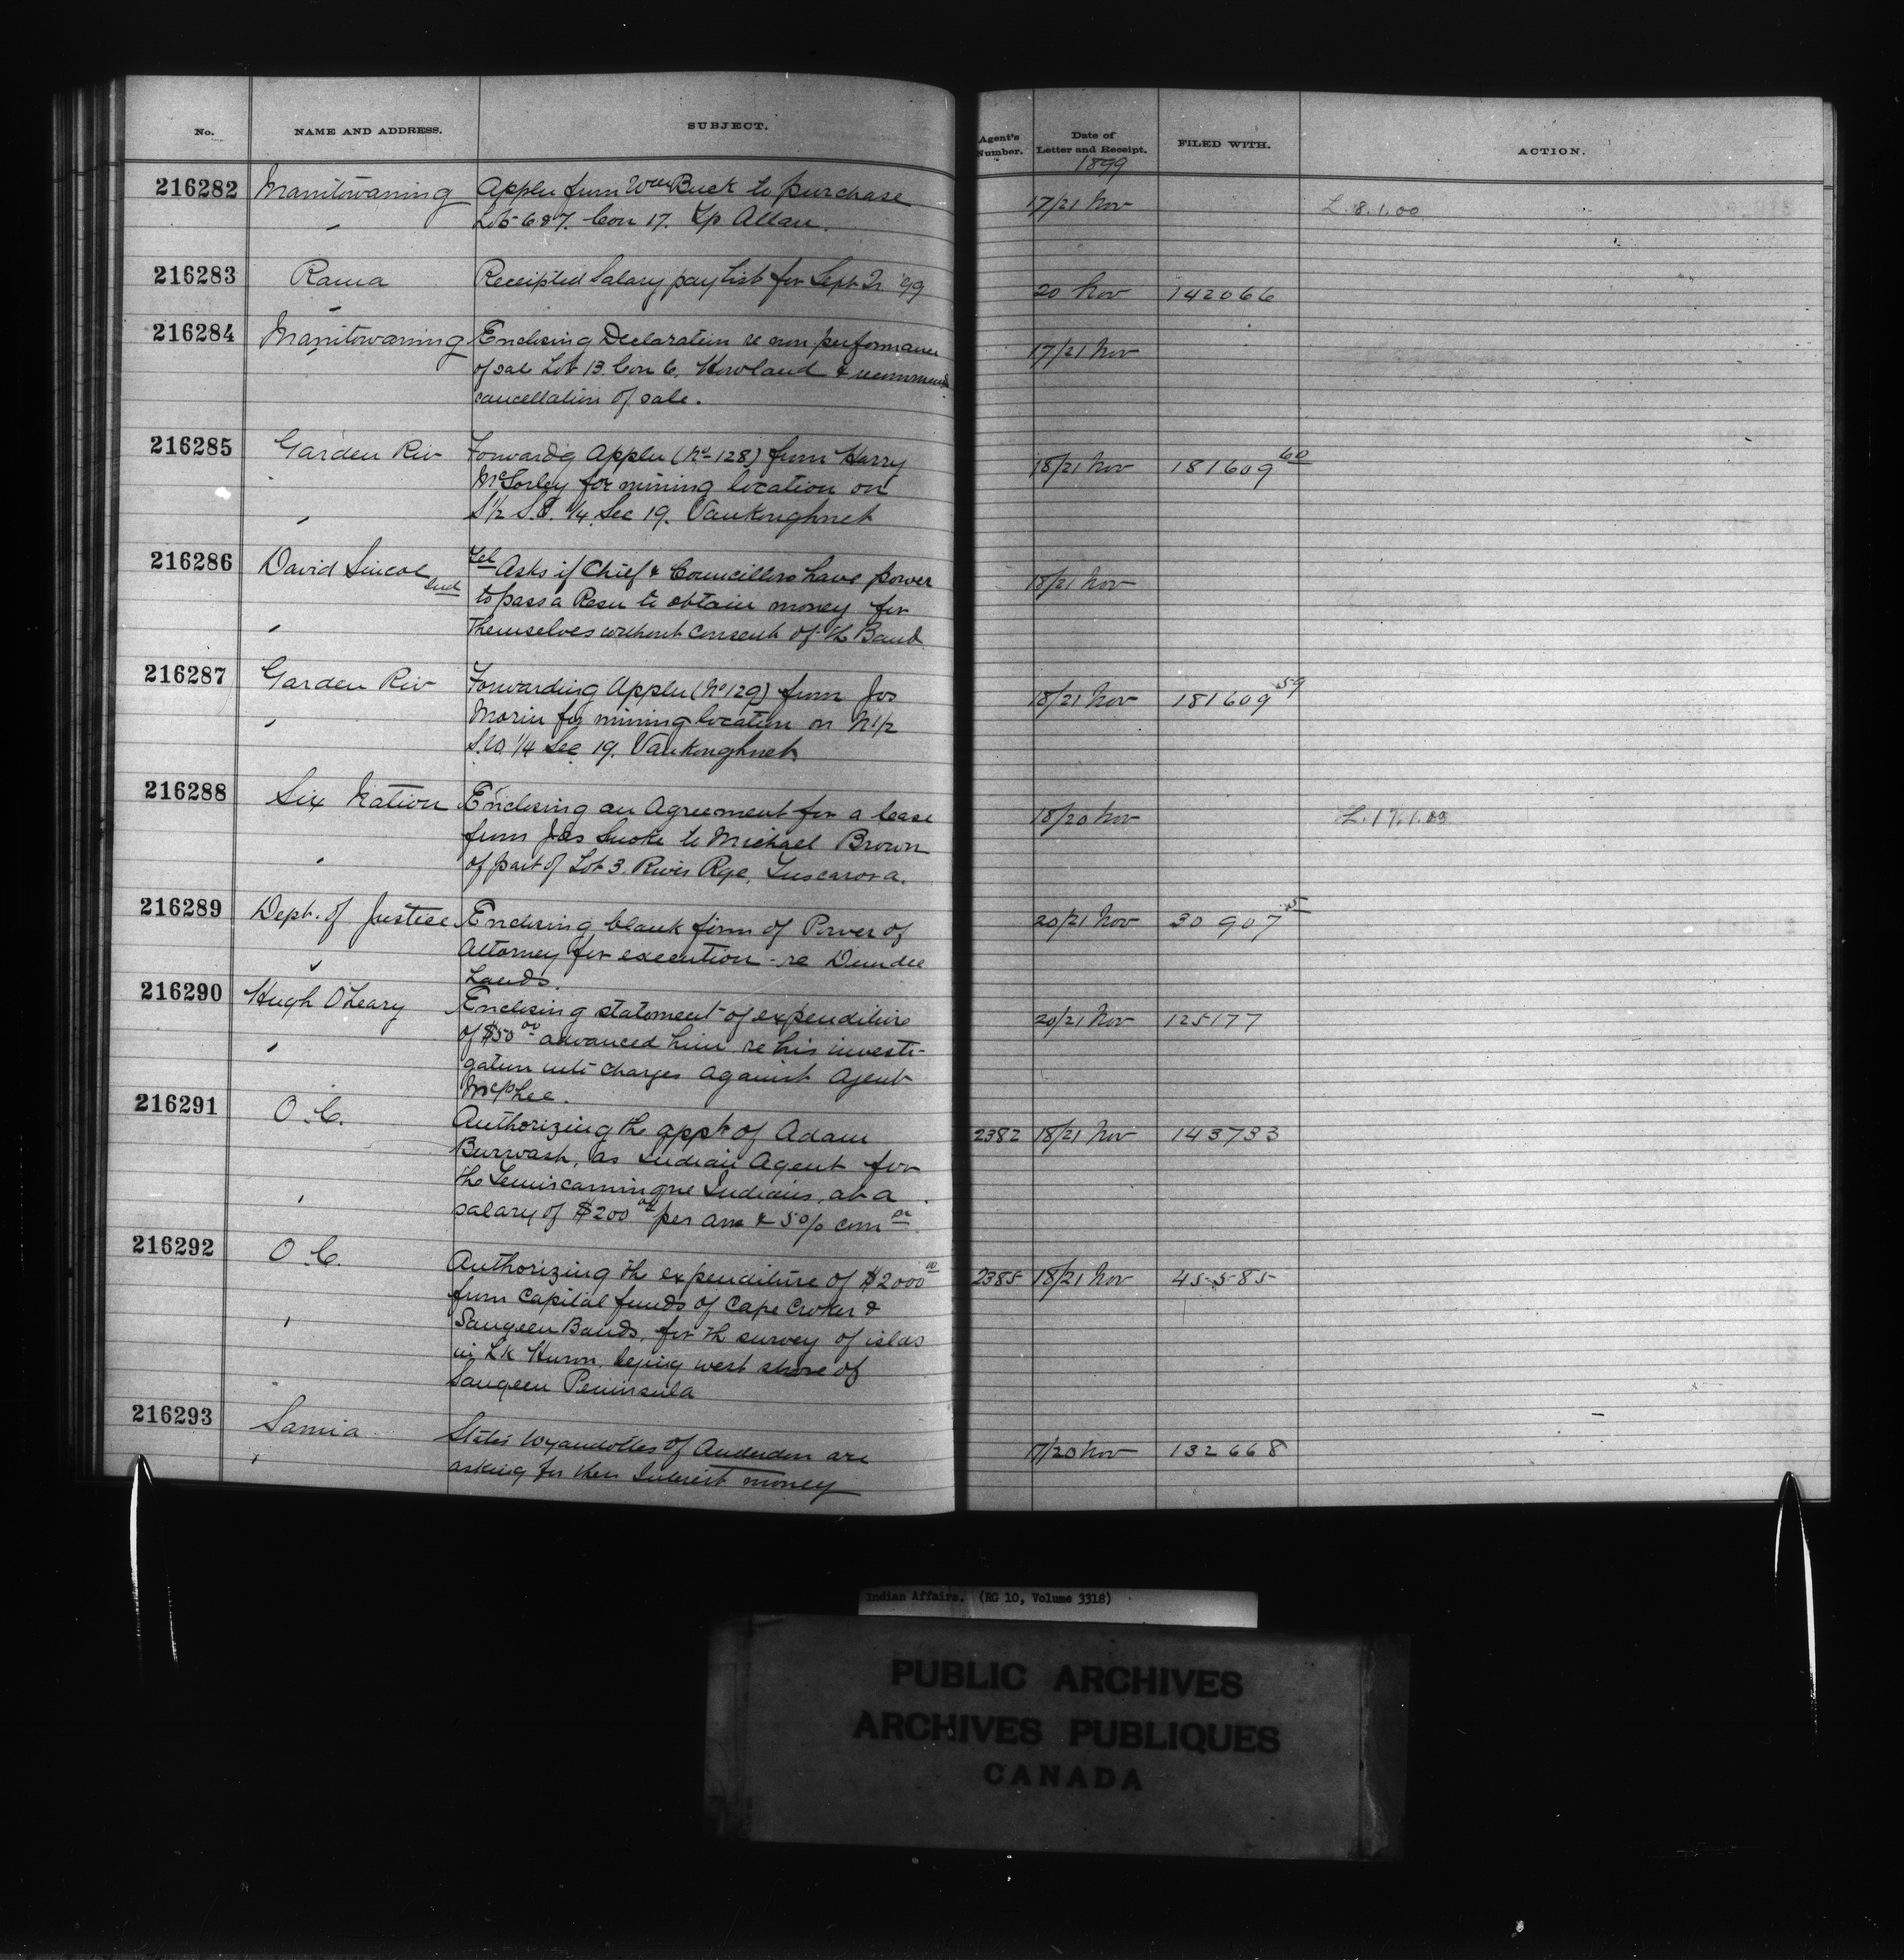 No. NAME AND ADDRESS. SUBJECT. Agent's Number. Date of Letter and Receipt. FILED WITH. ACTION.
1899
216282 Manitowaning Applen from Wm Buck to purchase 17/21 Nov L. 8.1.00
" Lots 6 & 7. Con 17. Tp Allan.
216283 Rama Receipted Salary pay list for Sept Qr '99 20 Nov 142066
"
216284 Manitowaning Enclosing Declaration re non performance 17/21 Nov
" of sale Lot 13. Con 6. Howland & recommends
cancellation of sale.
216285 Garden Riv Forwardg Applen (No 128) from Harry 18/21 Nov 181609 60
McSorley for mining location on
" S½ S.E. ¼ Sec 19. Vankoughnet
216286 David Ind Tel Asks if Chief & Councillors have power 18/21 Nov
to pass a Resn to obtain money for
" themselves without consent of the Band
216287 Garden Riv Forwarding Applen (No 129) from Jos 18/21 Nov 181609 59
" Morin for mining location on N½
S.W. ¼ Sec 19. Vankoughnet
216288 Six Nation Enclosing an Agreement for a lease 18/20 Nov L. 17.1.00
from Jas Smoke to Michael Brown
" of part of Lot 3. River Rge, Tuscarora.
216289 Dept. of Justice Enclosing blank form of Power of 20/21 Nov 30907 5
Attorney for execution - re Dundee
" Lands.
216290 Hugh O'Leary Enclosing statement of expenditure 20/21 Nov 125177
of $50 00 advanced him re his investi-
" gation into charges against Agent
McPhee.
216291 O.C. Authorizing the appt of Adam 2382 18/21 Nov 143733
Burwash, as Indian Agent for
the Temiscamingue Indians, at a
" salary of $200 00 per ann & 5% com on
216292 O.C. Authorizing the expenditure of $2000 00 2385 18/21 Nov 45585
from Capital funds of Cape Croker &
" Saugeen Bands, for the survey of islds
in Lk Huron, lying west shore of
Saugeen Peninsula
216293 Sarnia States Wyandottes of Anderdon are 17/20 Nov 132668
" asking for their Interest money
Indian Affairs. (RG 10, Volume 3318)
PUBLIC ARCHIVES
ARCHIVES PUBLIQUES
CANADA